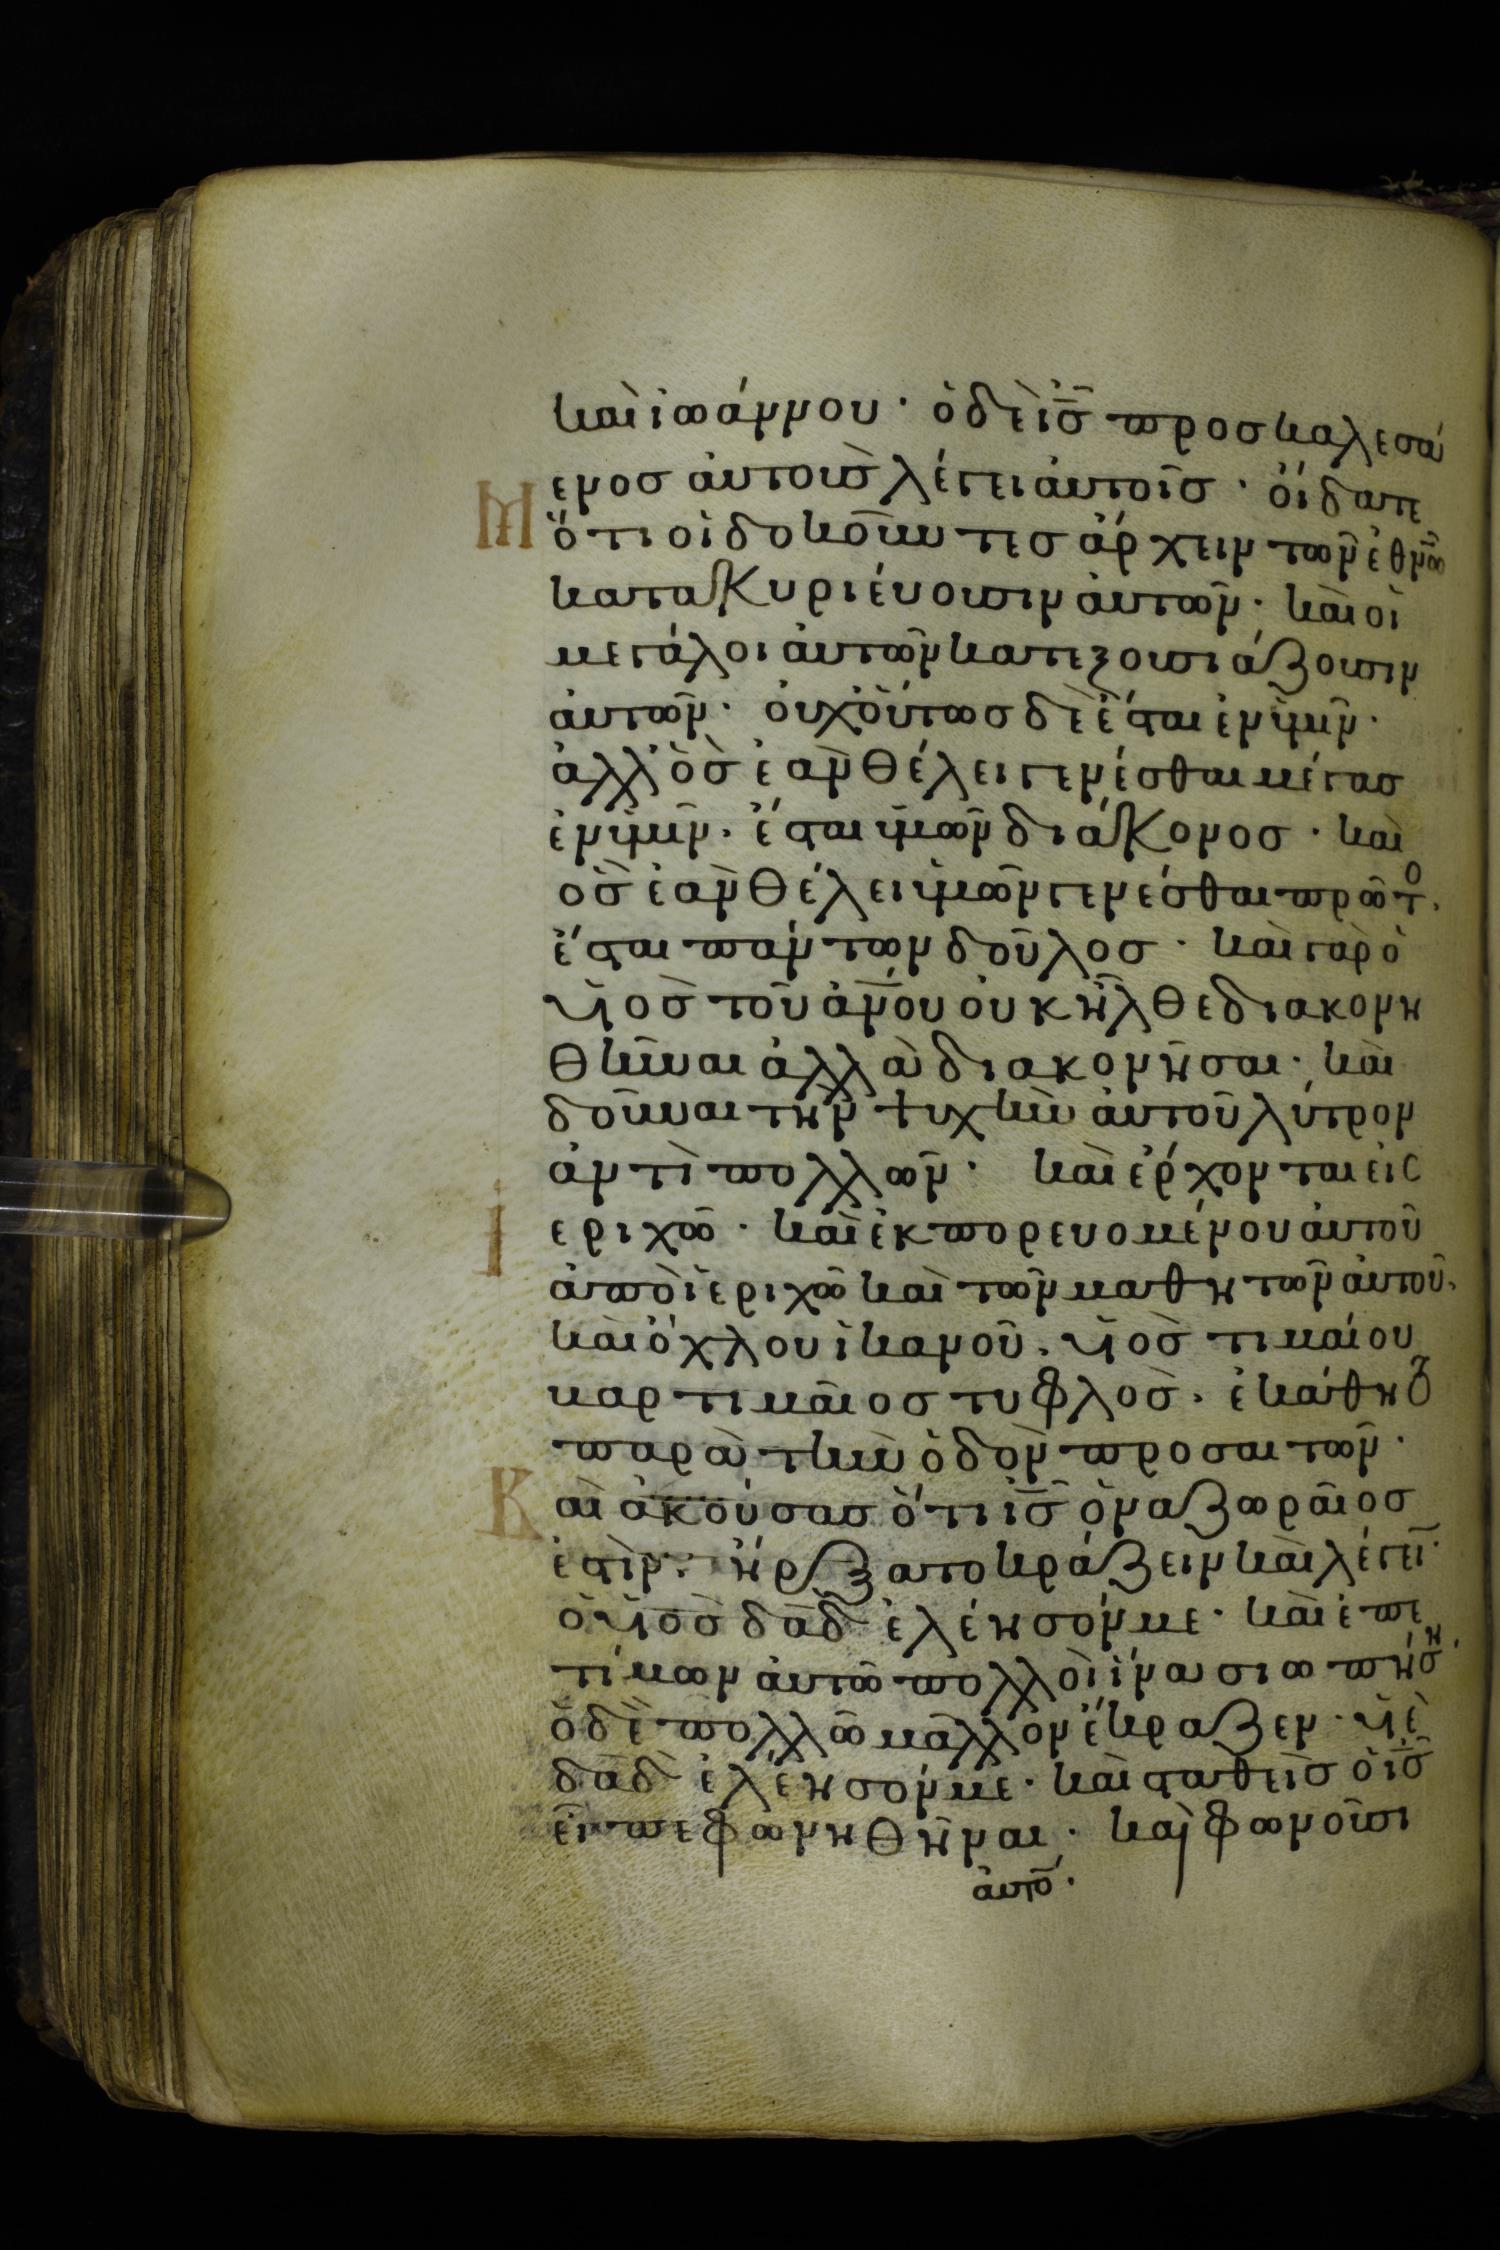 καὶ ἰωάννου · ὁ δὲ ις προσκαλεσά
Μ ενος ἀυτοὺς λέγει ἀυτοῖς · ὀίδατε
ὅτι οἱ δοκοῦντες ἄρχειν τῶν ἐθνῶν
κατακυριέυουσιν ἀυτῶν · καὶ οἱ
μεγάλοι ἀυτῶν κατεξουσιάζουσιν
ἀυτῶν · ὀυχ ὅυτως δὲ ἔσται ἐν ὑμῖν ·
ἀλλ ὃς ἐὰν θέλει γενέσθαι μέγας
ἐν ὑμῖν · ἔσται ὑμῶν διάκονος · καὶ
ὃς ἐὰν θέλει ὑμῶν γενέσθαι πρῶτο ·
ἔσται πάντων δοῦλος · καὶ γὰρ ὁ
ὑιὸς τοῦ ἀνου ὀυκ ἦλθε διακονη
θῆναι ἀλλὰ διακονῆσαι · καὶ
δοῦναι τὴν ψυχὴν ἀυτοῦ λύτρον
ἀντὶ πολλῶν · καὶ ἔρχονται ἐις
Ι εριχῶ · καὶ ἐκπορευομένου ἀυτοῦ
ἀπὸ ἰεριχῶ καὶ τῶν μαθητῶν ἀυτοῦ ·
καὶ ὄχλου ἱκανοῦ · ὑιὸς τιμαίου
βαρτιμαῖος τυφλὸς · ἐκάθητο
παρὰ τὴν ὁδὸν προσαιτῶν ·
Κ αὶ ἀκούσας ὅτι ις ὁ ναζωραῖος
ἐστὶν · ἤρξατο κράζειν καὶ λέγειν ·
ὁ ὑιὸς δαδ ἐλέησόν με · καὶ ἐπε
τίμων ἀυτῶ πολλοὶ ἵνα σιωπήση ·
ὁ δὲ πολλῶ μᾶλλον ἔκραζεν · ὑιὲ
δαδ ἐλέησόν με · καὶ σταθεὶς ὁ ις
εἶπε φωνηθῆναι · καὶ φωνοῦσι
ἀυτό ·